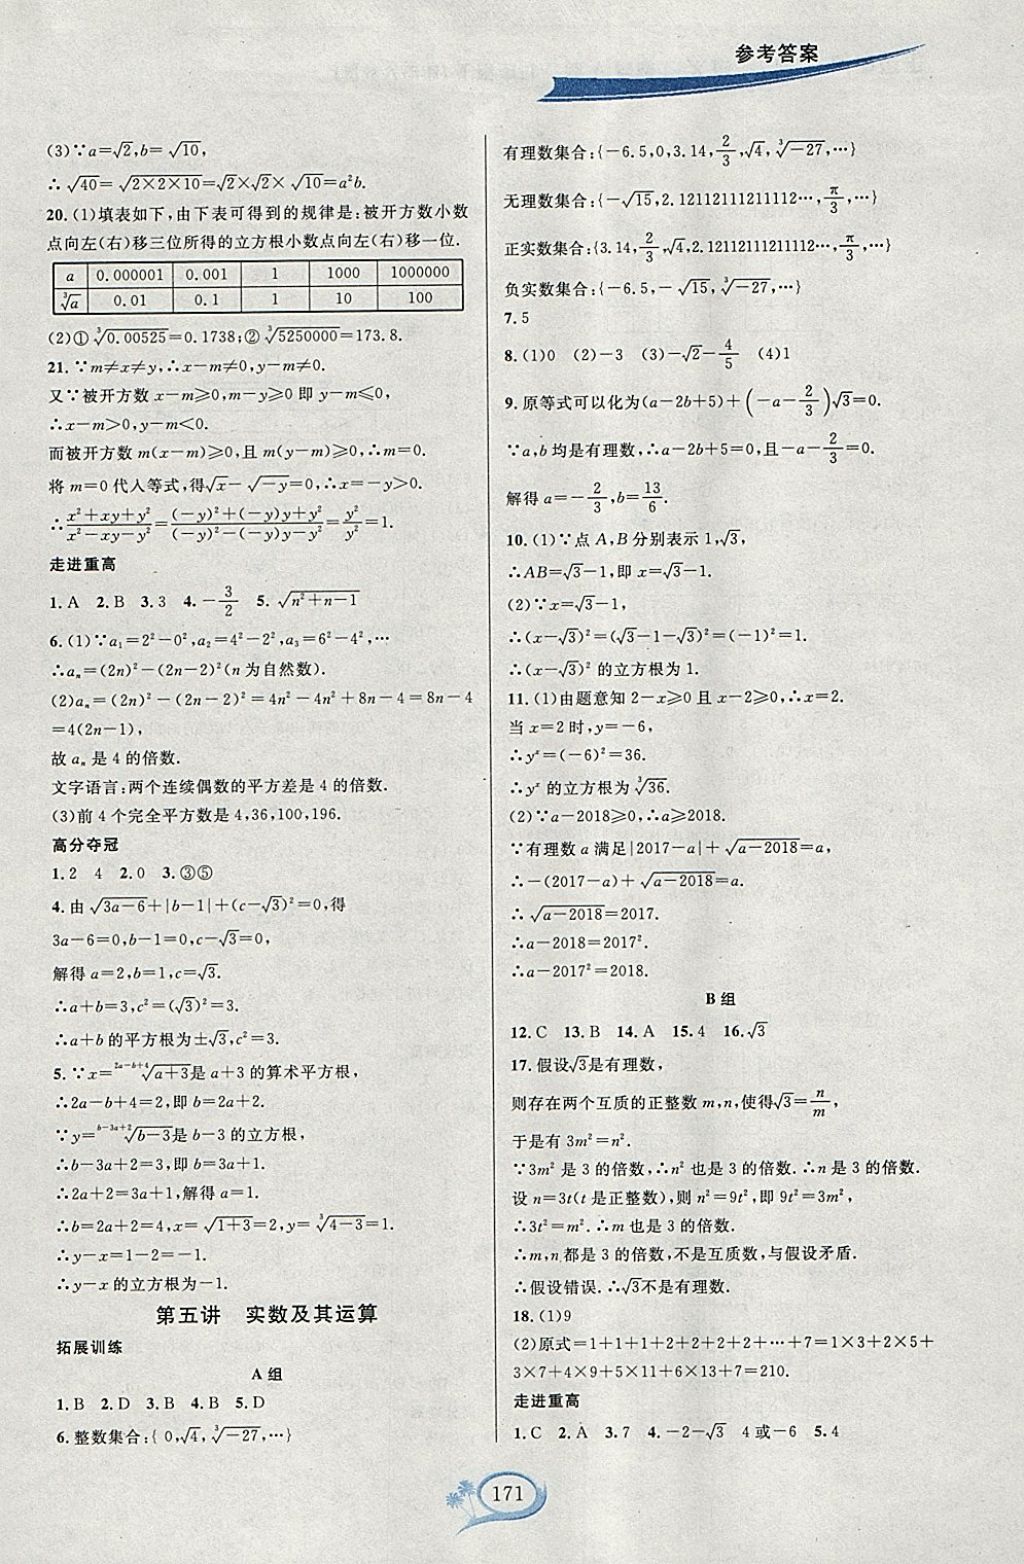 参考答案
(3)∵a=√2,b=√10,
∴√40=√2×2×10=√2×√2×√10=a²b.
20.(1)填表如下,由下表可得到的规律是:被开方数小数
点向左(右)移三位所得的立方根小数点向左(右)移一位.
a 0.000001 0.001 1 1000 1000000
∛a 0.01 0.1 1 10 100
(2)①∛0.00525=0.1738;②∛5250000=173.8.
21.∵m≠x≠y,∴x-m≠0,y-m≠0.
又∵被开方数 x-m≥0,m-y≥0 即 y-m≤0,
∴x-m>0,y-m<0.
而被开方数 m(x-m)≥0,且 m(y-m)≥0,∴m=0.
将 m=0 代入等式,得√x-√-y=0,∴x=-y>0.
∴(x²+xy+y²)/(x²-xy-y²)=((-y)²+(-y)y+y²)/((-y)²-(-y)y-y²)=y²/y²=1.
走进重高
1.A 2.B 3.3 4.-3/2 5.√n²+n-1
6.(1)∵a₁=2²-0²,a₂=4²-2²,a₃=6²-4²,…
∴aₙ=(2n)²-(2n-2)²(n 为自然数).
(2)aₙ=(2n)²-(2n-2)²=4n²-4n²+8n-4=8n-4
=4(2n-1),
故 aₙ 是 4 的倍数.
文字语言:两个连续偶数的平方差是 4 的倍数.
(3)前 4 个完全平方数是 4,36,100,196.
高分夺冠
1.2 4 2.0 3.③⑤
4.由√3a-6+|b-1|+(c-√3)²=0,得
3a-6=0,b-1=0,c-√3=0,
解得 a=2,b=1,c=√3.
∴a+b=3,c²=(√3)²=3.
∴a+b 的平方根为±√3,c²=3.
5.∵x=²ᵃ⁻ᵇ⁺⁴√a+3是 a+3 的算术平方根,
∴2a-b+4=2,即 b=2a+2.
∵y=ᵇ⁻³ᵃ⁺²√b-3是 b-3 的立方根,
∴b-3a+2=3,即 b=3a+1.
∴2a+2=3a+1,解得 a=1.
∴b=2a+2=4,x=√1+3=2,y=∛4-3=1.
∴y-x=1-2=-1.
∴y-x 的立方根为-1.
第五讲 实数及其运算
拓展训练
A 组
1.B 2.D 3.B 4.B 5.D
6.整数集合:{ 0,√4,∛-27,…}
有理数集合:{-6.5,0,3.14,2/3,√4,∛-27,…}
无理数集合:{-√15,2.12112111211112…,π/3,…}
正实数集合:{3.14,2/3,√4,2.12112111211112…,π/3,…}
负实数集合:{-6.5,-√15,∛-27,…}
7.5
8.(1)0 (2)-3 (3)-√2-4/5 (4)1
9.原等式可以化为(a-2b+5)+(-a-2/3)√3=0.
∵a,b 均是有理数,∴a-2b+5=0,且-a-2/3=0.
解得 a=-2/3,b=13/6.
10.(1)∵点 A,B 分别表示 1,√3,
∴AB=√3-1,即 x=√3-1.
(2)∵x=√3-1,
∴(x-√3)²=(√3-1-√3)²=(-1)²=1.
∴(x-√3)² 的立方根为 1.
11.(1)由题意知 2-x≥0 且 x-2≥0,∴x=2.
当 x=2 时,y=-6,
∴yˣ=(-6)²=36.
∴yˣ 的立方根为∛36.
(2)∵a-2018≥0,∴a≥2018.
∵有理数 a 满足|2017-a|+√a-2018=a,
∴-(2017-a)+√a-2018=a.
∴√a-2018=2017.
∴a-2018=2017².
∴a-2017²=2018.
B 组
12.C 13.B 14.A 15.4 16.√3
17.假设√3是有理数,
则存在两个互质的正整数 m,n,使得√3=n/m,
于是有 3m²=n².
∵3m² 是 3 的倍数,∴n² 也是 3 的倍数.∴n 是 3 的倍数.
设 n=3t(t 是正整数),则 n²=9t²,即 9t²=3m²,
∴3t²=m².∴m 也是 3 的倍数.
∴m,n 都是 3 的倍数,不是互质数,与假设矛盾.
∴假设错误.∴√3不是有理数.
18.(1)9
(2)原式=1+1+1+2+2+2+2+…+7=1×3+2×5+
3×7+4×9+5×11+6×13+7=210.
走进重高
1.C 2.A 3.7 4.-2-√3 4 或-6 5.4
171